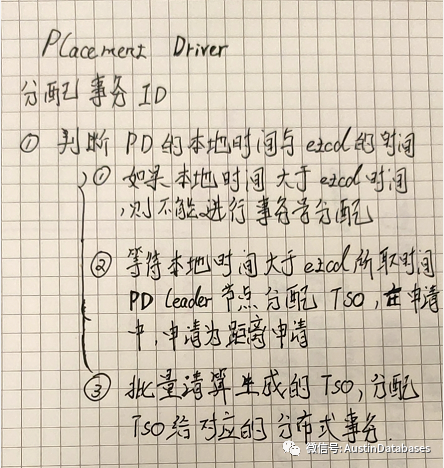 Placement Driver
分配事务 ID
① 判断 PD 的本地时间与 ezcd 的时间
① 如果本地时间大于 ezcd 时间
,则不能进行事务号分配
② 等待本地时间大于 ezcd 所取时间
PD Leader 节点分配 TSO, 在申请
中,申请为距离申请
③ 批量请算生成的 TSO, 分配
TSO 给对应的分布式事务
微信号: AustinDatabases